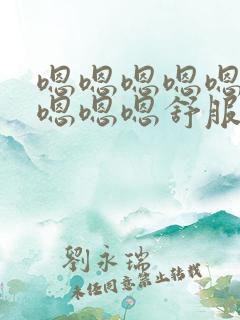 嗯嗯嗯嗯嗯
嗯嗯嗯舒服
劉永瑞
未经同意禁止转载